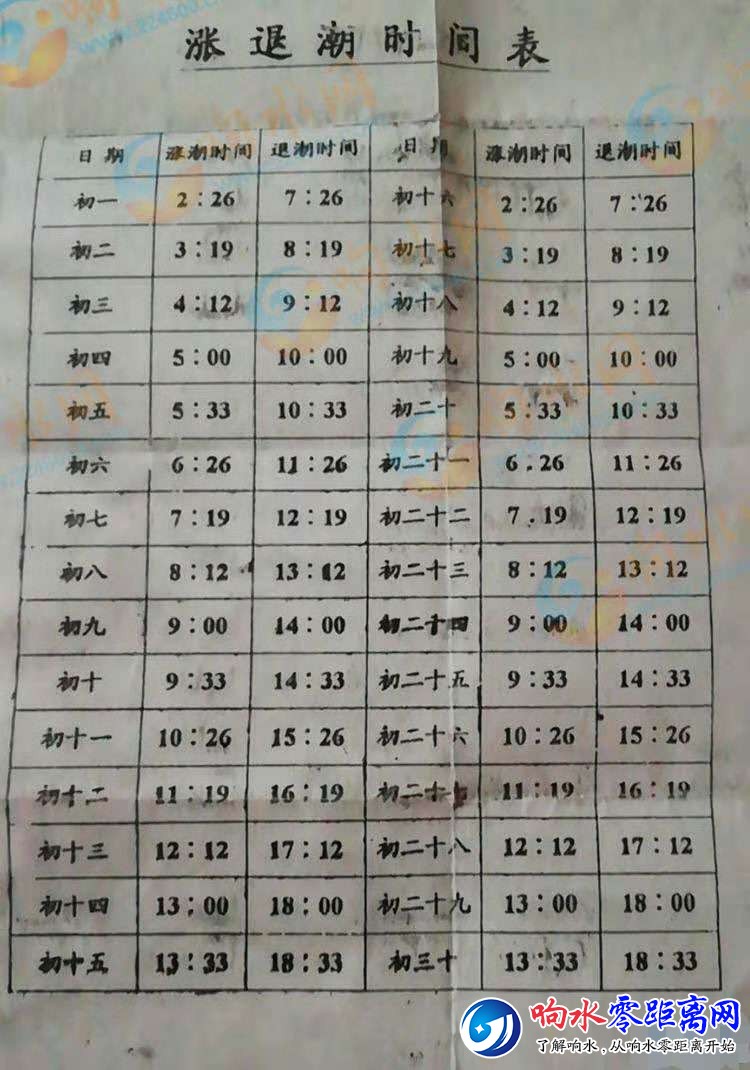 涨退潮时间表
日期 涨潮时间 退潮时间 日期 涨潮时间 退潮时间
初一 2:26 7:26 初十六 2:26 7:26
初二 3:19 8:19 初十七 3:19 8:19
初三 4:12 9:12 初十八 4:12 9:12
初四 5:00 10:00 初十九 5:00 10:00
初五 5:33 10:33 初二十 5:33 10:33
初六 6:26 11:26 初二十一 6.26 11:26
初七 7:19 12:19 初二十二 7.19 12:19
初八 8:12 13:12 初二十三 8:12 13:12
初九 9:00 14:00 初二十四 9:00 14:00
初十 9:33 14:33 初二十五 9:33 14:33
初十一 10:26 15:26 初二十六 10:26 15:26
初十二 11:19 16:19 初二十七 11:19 16:19
初十三 12:12 17:12 初二十八 12:12 17:12
初十四 13:00 18:00 初二十九 13:00 18:00
初十五 13:33 18:33 初三十 13:33 18:33
响水零距离网
了解响水,从响水零距离开始